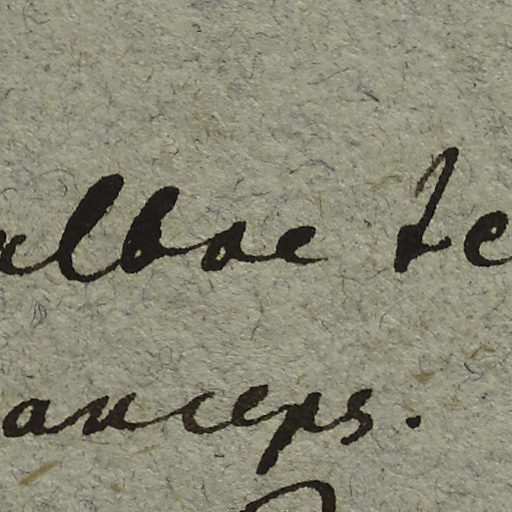 albae te
anceps.